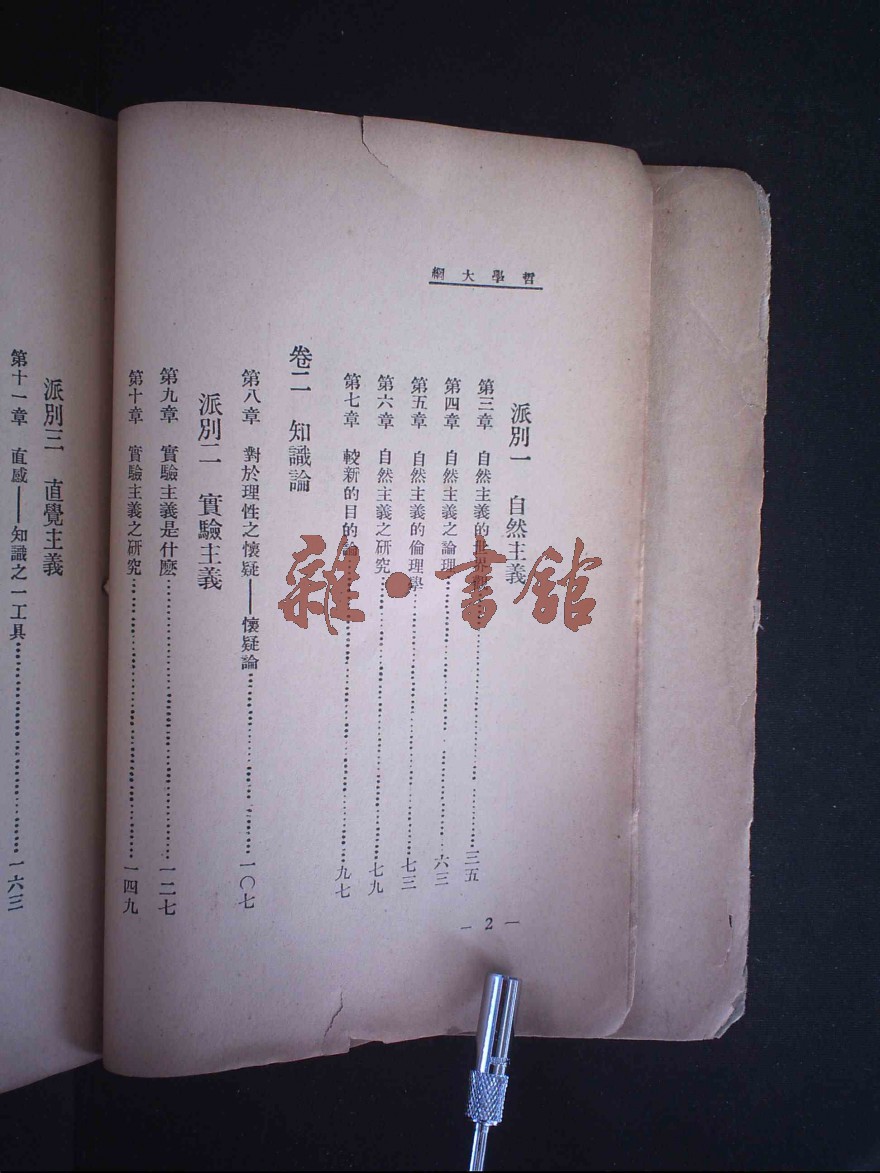 哲學大綱
派別一　自然主義
第三章　自然主義的世界觀……三五
第四章　自然主義之論理……六三
第五章　自然主義的倫理學……七三
第六章　自然主義之研究……七九
第七章　較新的目的論……九七
卷二　知識論
第八章　對於理性之懷疑——懷疑論……一〇七
派別二　實驗主義
第九章　實驗主義是什麽……一二七
第十章　實驗主義之研究……一四九
— 2 —
派別三　直覺主義
第十一章　直感——知識之一工具……一六三
雜·書館